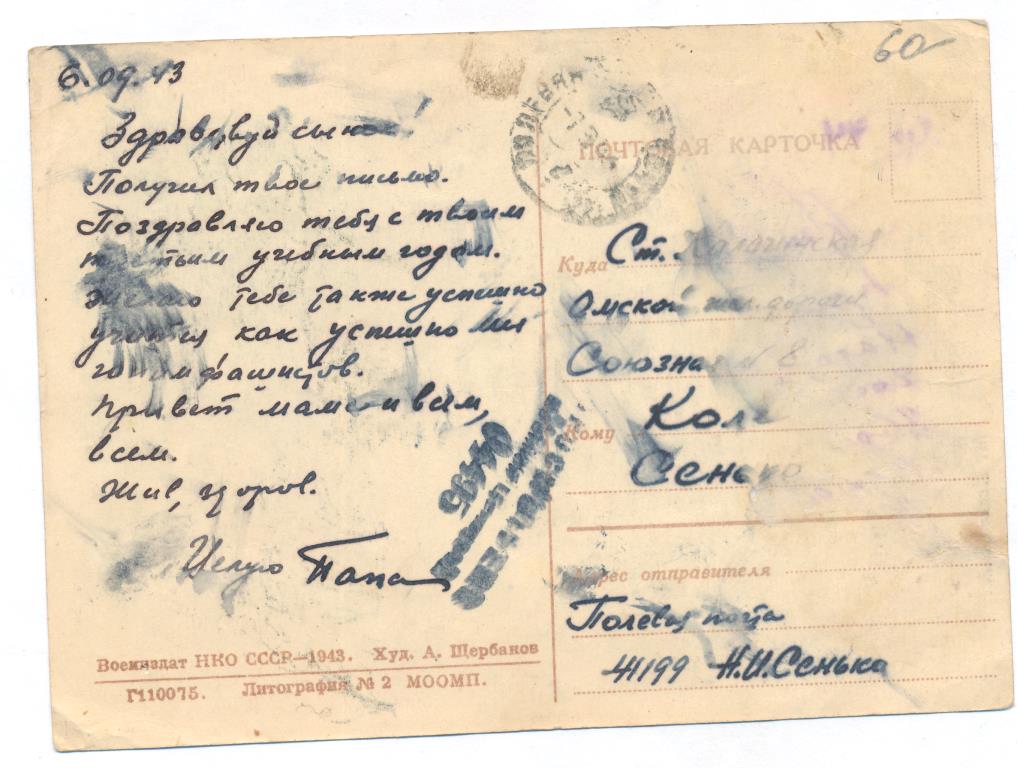 6.09.43
60
Здравствуй сынок!
Получил твое письмо.
Поздравляю тебя с твоим
третьим учебным годом.
Желаю тебе также успешно
учится как успешно мы
гоним фашистов.
Привет маме и всем,
всем.
Жив, здоров.
Целую Папа
Воениздат НКО СССР—1943. Худ. А. Щербанов
Г110075. Литография № 2 МООМП.
ПОЧТОВАЯ КАРТОЧКА
Куда Ст. Калачинская
Омской жел. дороги
Союзная № 8
Кому Коле
Сенько
Адрес отправителя
Полевая почта
41199 Н.И.Сенька